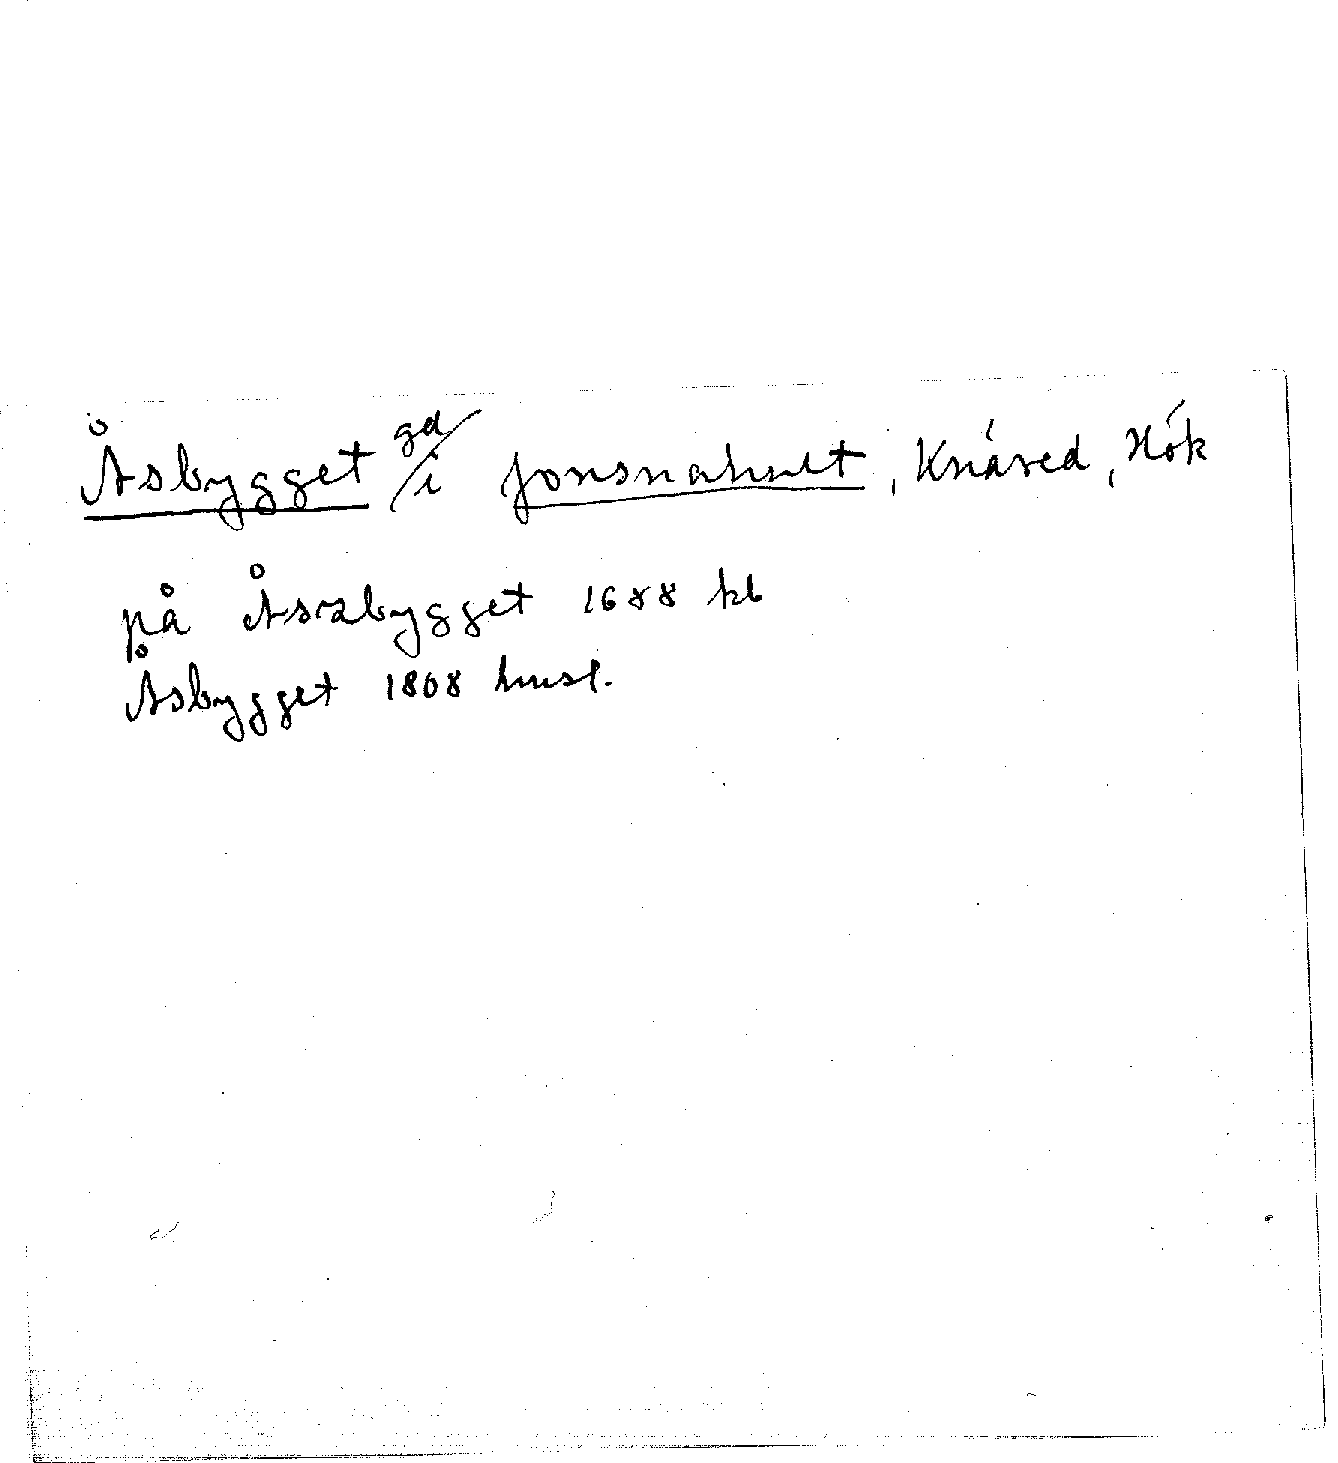 Åsbygget gd/i Jonsnahult, Knäred, Hök
på Åszbygget 1688 kb
Åsbygget 1808 husf.